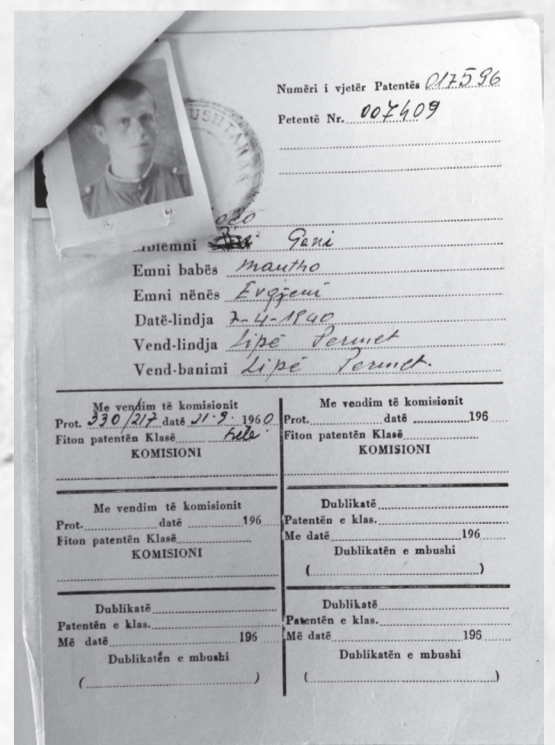 Numëri i vjetër Patentës 017596
Petentë Nr. 007409
USHTAR
Geni
Emni babës Mantho
Emni nënës Evgjeni
Datë-lindja 7-4-1940
Vend-lindja Lipë Permet
Vend-banimi Lipë Permet.
Me vendim të komisionit
Prot. 330/217 datë 21.9. 1960
Fiton patentën Klasë
KOMISIONI
Me vendim të komisionit
Prot. datë 196
Fiton patentën Klasë
KOMISIONI
Me vendim të komisionit
Prot. datë 196
Fiton patentën Klasë
KOMISIONI
Dublikatë
Patentën e klas.
Me datë 196
Dublikatën e mbushi
( )
Dublikatë
Patentën e klas.
Më datë 196
Dublikatën e mbushi
( )
Dublikatë
Patentën e klas.
Më datë 196
Dublikatën e mbushi
( )